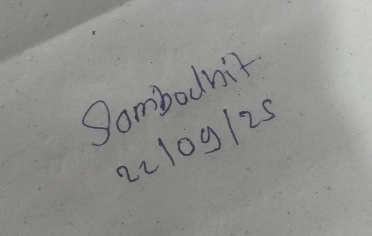 Sombodhit
22/09/25